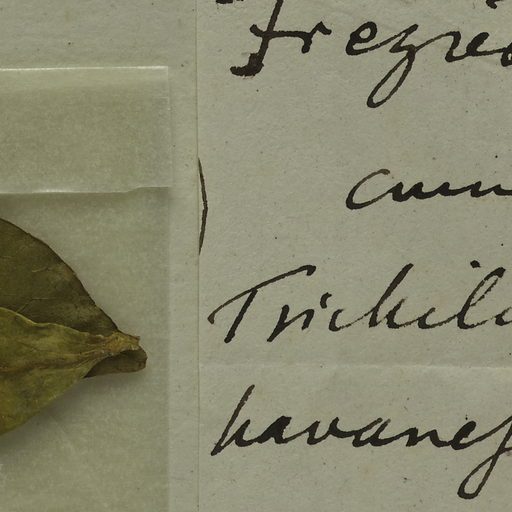 Frezie
cum
Trichil
havanes